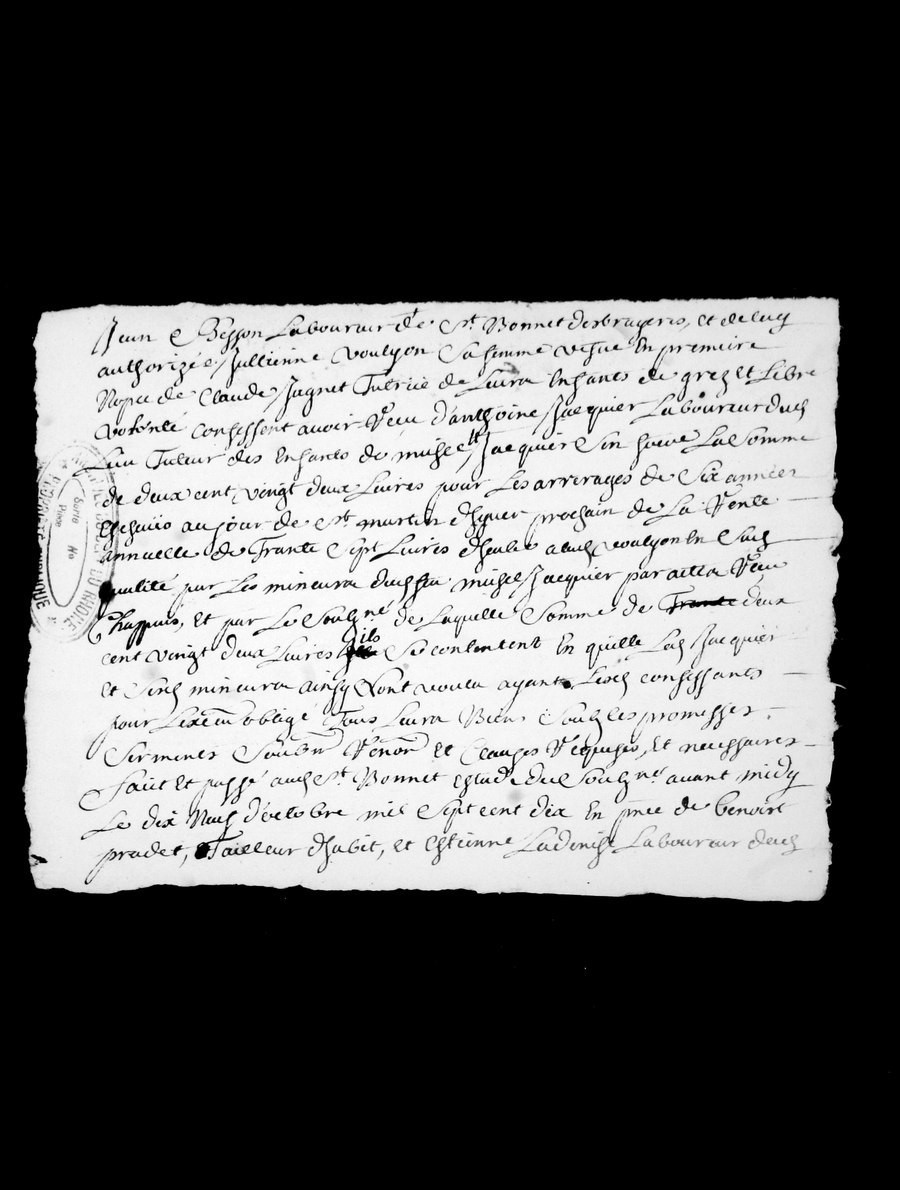 Jean Besson Laboureur de St Bonnet des bruyeres, et de luy
authorizée, Jullienne voulyon Sa femme vefve En premiere
Nopce de Claude Jugnet Tutrice de Leurs Enfants de gré et Libre
volonté confessent avoir Receu d'anthoine Jacquier Laboureur dud
Lieu Tuteur des Enfants de michel Jacquier Son frere La Somme
de deux cent vingt deux Livres pour Les arrerages de Six années
Escheues au jour de St martin d'hyver prochain de La Rente
annuelle de Trante Sept Livres deube a lad voulyon En Lad
qualité par Les mineurs dud feu michel Jacquier par acte Receu
Chappuis, et par Le Soubsné de Laquelle Somme de Trante deux
cent vingt deux Livres ils Se contentent En quitte Led Jacquier
et Sesd mineurs ainsy Sont voulu ayant Lesd confessants
pour L'exeon obligé Tous Leurs Biens Soubs Les promesses,
Serments Soubmon Renon et Clauses Requises, et necessaires
Fait et passé aud St Bonnet Estude du Soubsné avant midy
Le dix Neuf d'octobre mil Sept cent dix En pnce de benoist
pradet, Tailleur d'habit, et Estienne Ladenise Laboureur dud
ARCHIVES DU RHONE
Sorte
Pièce
No